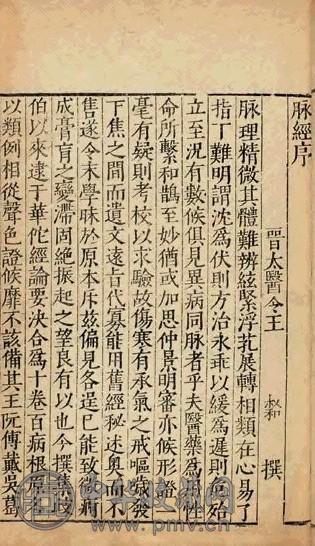 脉經序
晉太醫令王 叔和 撰
脉理精微其體難辨絃緊浮芤展轉相類在心易了
指下難明謂沈爲伏則方治永乖以緩爲遲則危殆
立至況有數候俱見異病同脉者乎夫醫藥爲用性
命所繫和鵲至妙猶或加思仲景明審亦候形證一
毫有疑則考校以求驗故傷寒有承氣之戒嘔噦發
下焦之間而遺文遠旨代寡能用舊經秘述奧而不
售遂令末學昧於原本斥茲偏見各逞已能致微痾
成膏肓之變滯固絶振起之望良有以也今撰集岐
伯以來逮于華佗經論要決合爲十卷百病根原各
以類例相從聲色證候靡不該備其王阮傅戴吳葛
www.pmv.cn